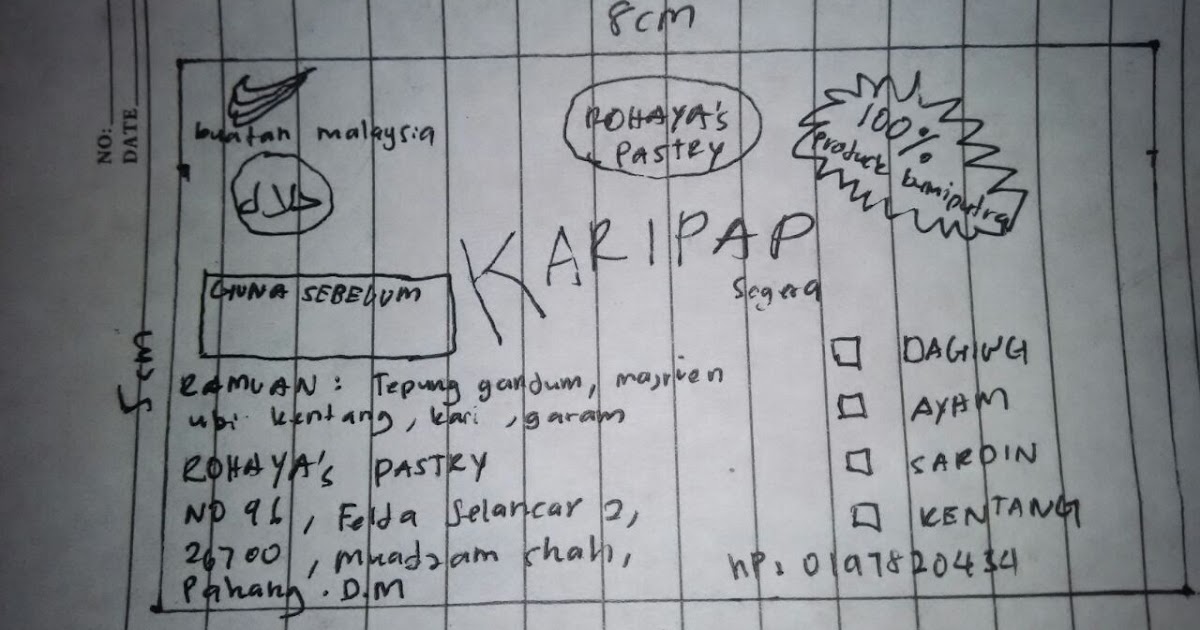 NO:
DATE
8cm
5cm
buatan malaysia
حلال
ROHAYA's
PASTRY
100%
product bumiputra
KARIPAP
segera
GUNA SEBELUM
RAMUAN: Tepung gandum, majrien
ubi kentang, kari, garam
DAGING
AYAM
SARDIN
KENTANG
ROHAYA's PASTRY
NO 96, Felda Selancar 2,
26700, muadzam shah,
Pahang. D.M
HP: 0197820434